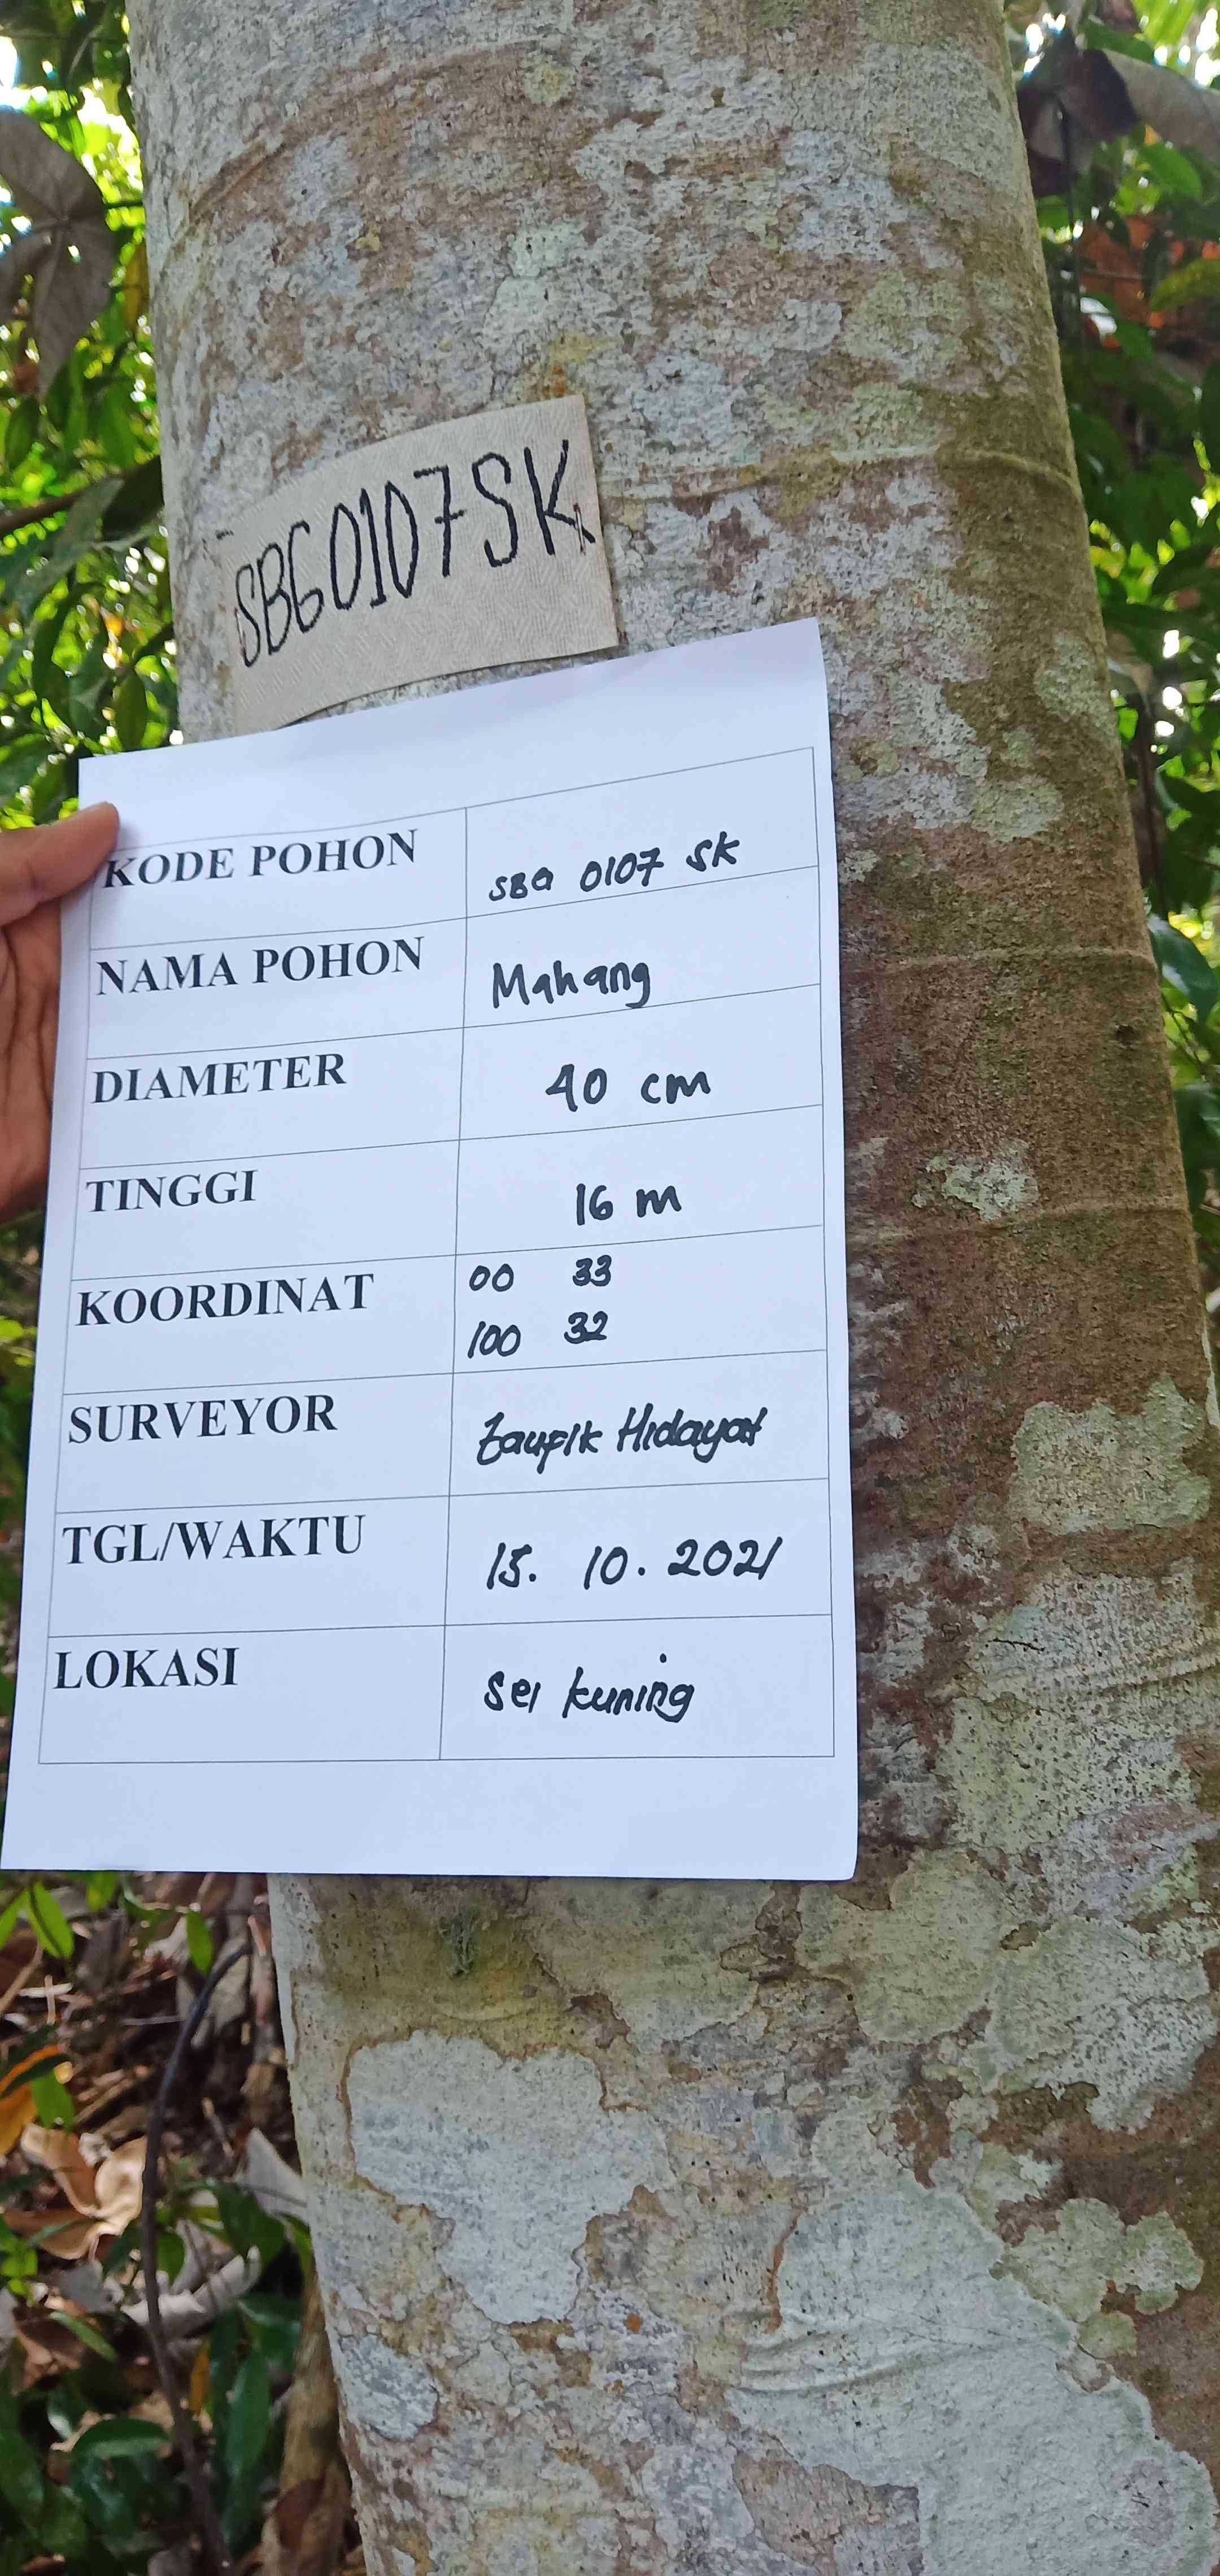 SBG0107SK
KODE POHON SBG 0107 SK
NAMA POHON Mahang
DIAMETER 40 cm
TINGGI 16 m
KOORDINAT 00 33
100 32
SURVEYOR Taufik Hidayat
TGL/WAKTU 15. 10. 2021
LOKASI Sei kuning